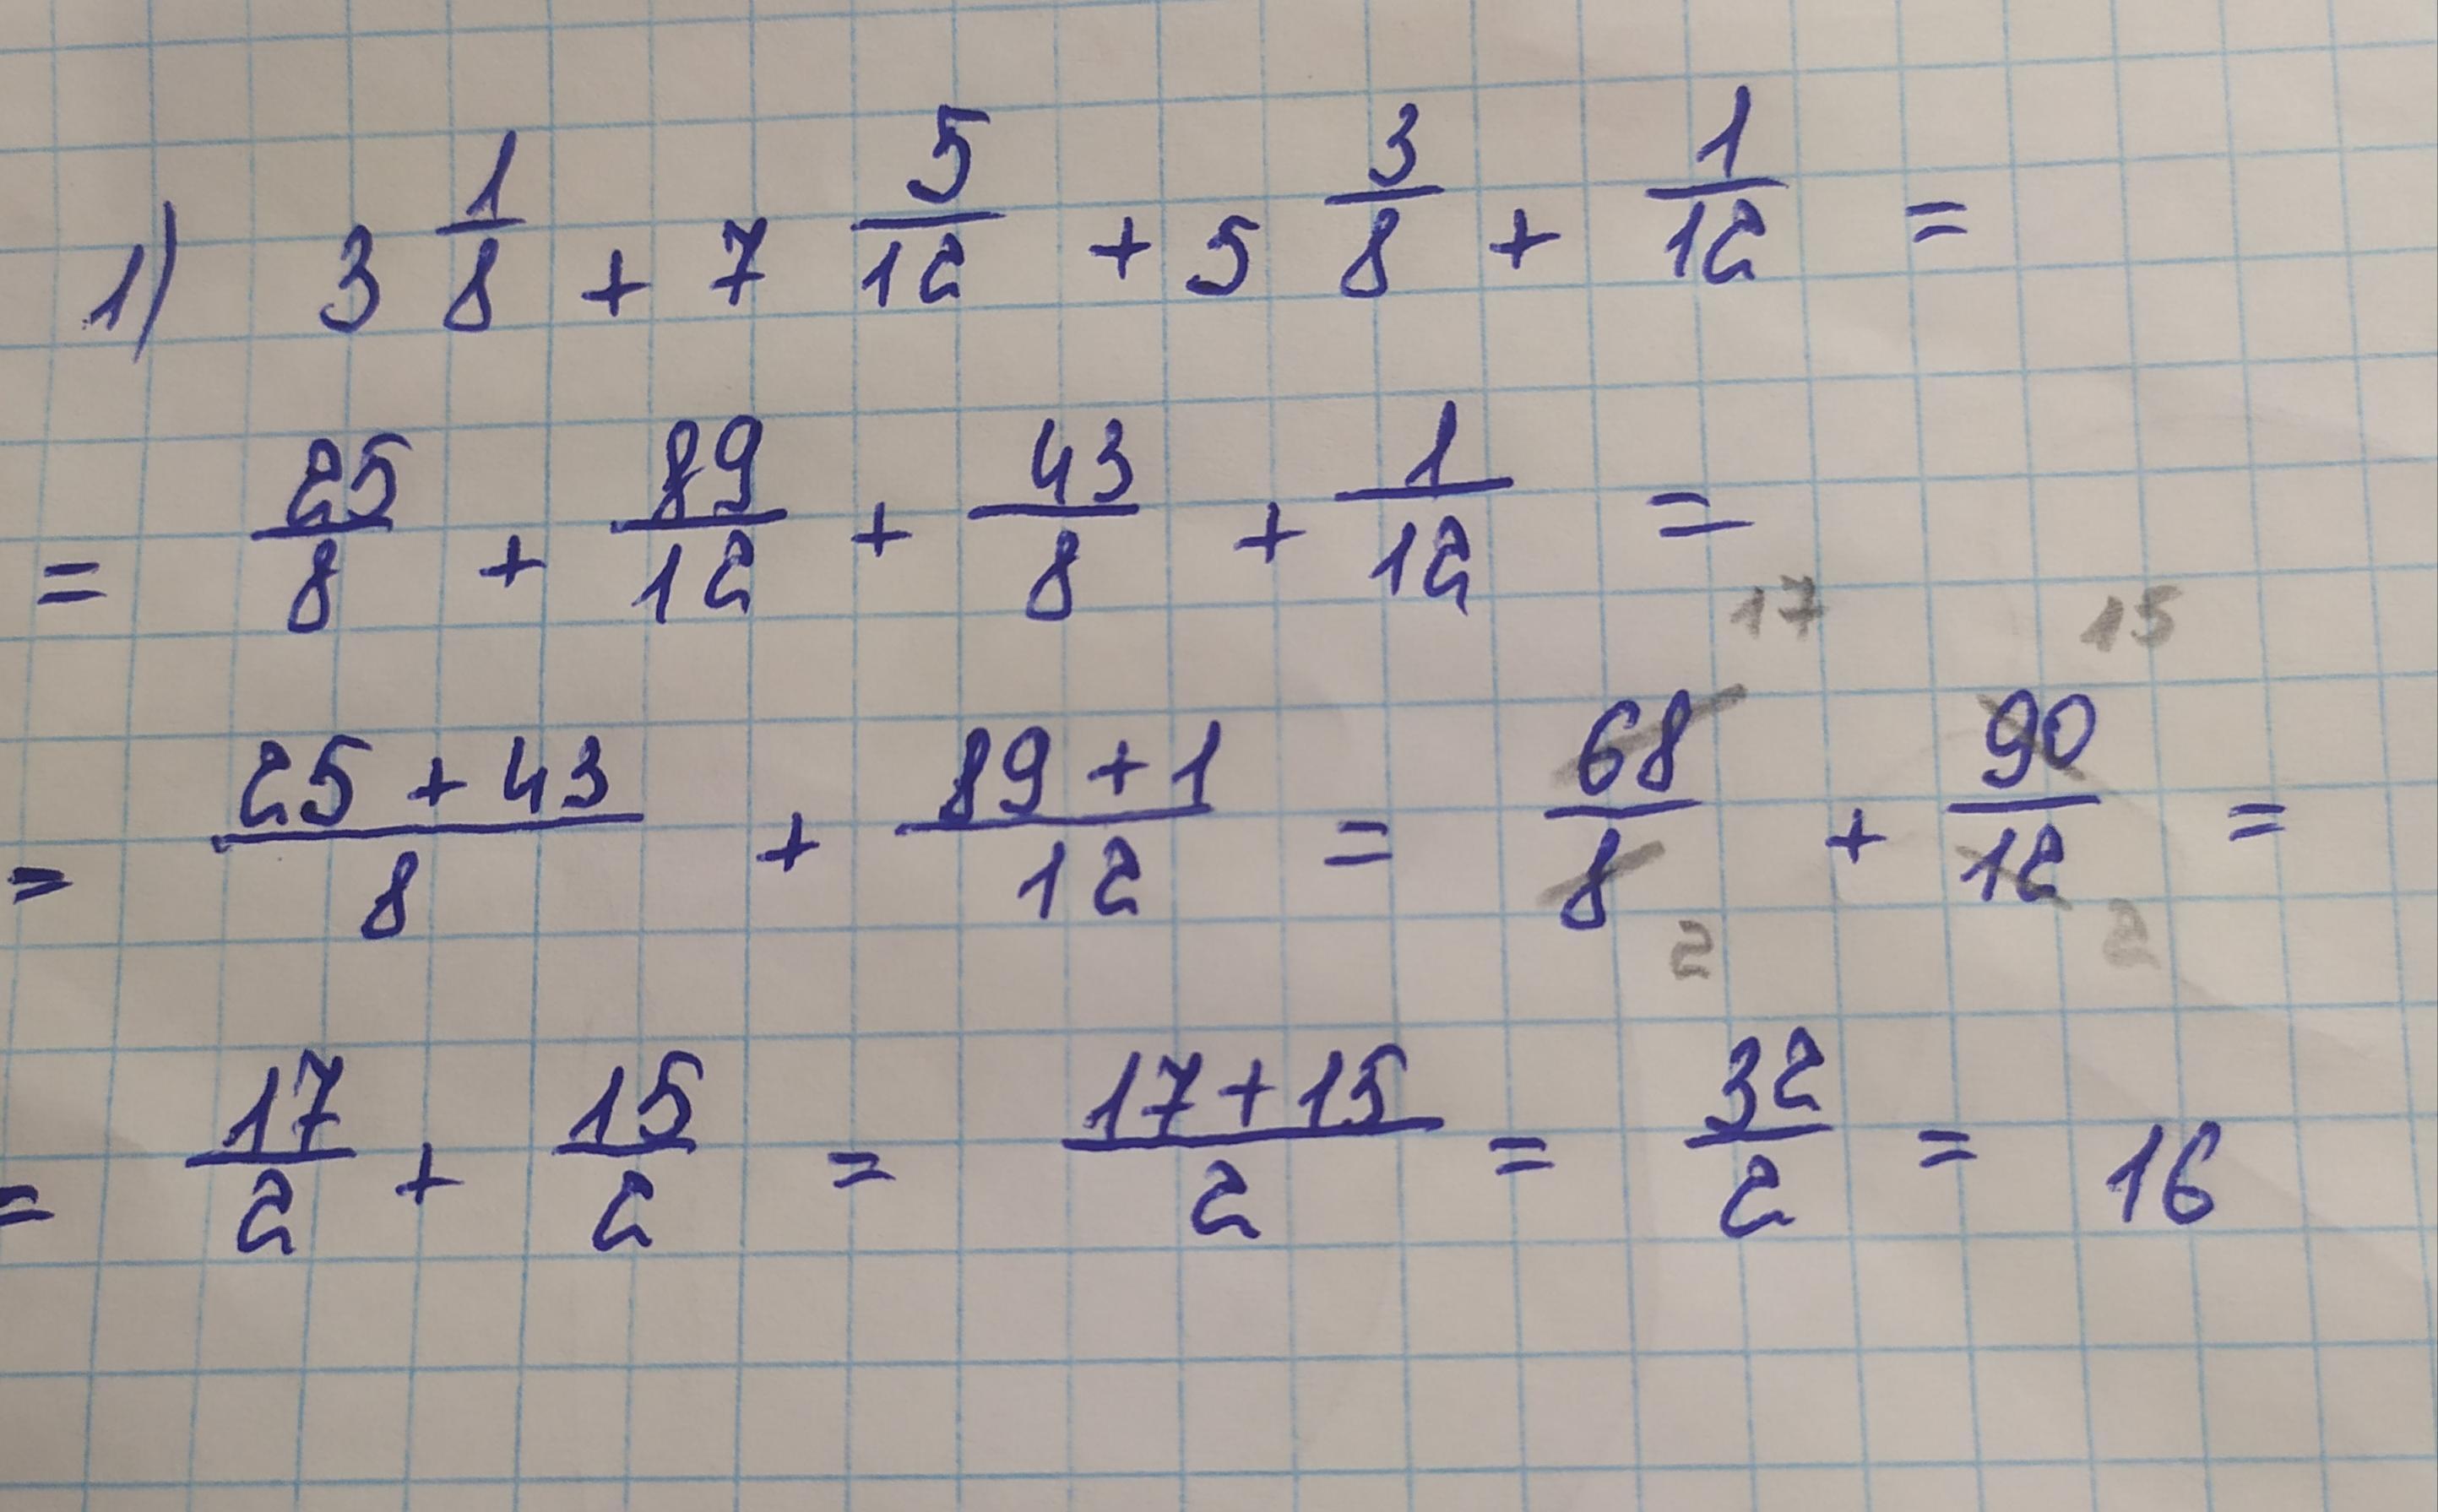 1) 3 1/8 + 7 5/12 + 5 3/8 + 1/12 =
= 25/8 + 89/12 + 43/8 + 1/12 =
= (25 + 43)/8 + (89 + 1)/12 = 68/8 17 2 + 90/12 15 2 =
= 17/2 + 15/2 = (17 + 15)/2 = 32/2 = 16